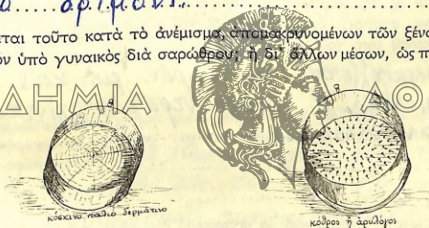 ἀριμάνι.
ται τοῦτο κατὰ τὸ ἀνέμισμα, ἀπομακρυνομένων τῶν ξένω
ὑπὸ γυναικὸς διὰ σαρώθρου; ἢ δι' ἄλλων μέσων, ὡς π
ΔΗΜΙΑ ΑΘ
κόσκινο παλιό δερμάτινο
κόθρος ἢ ἀρυλόγος